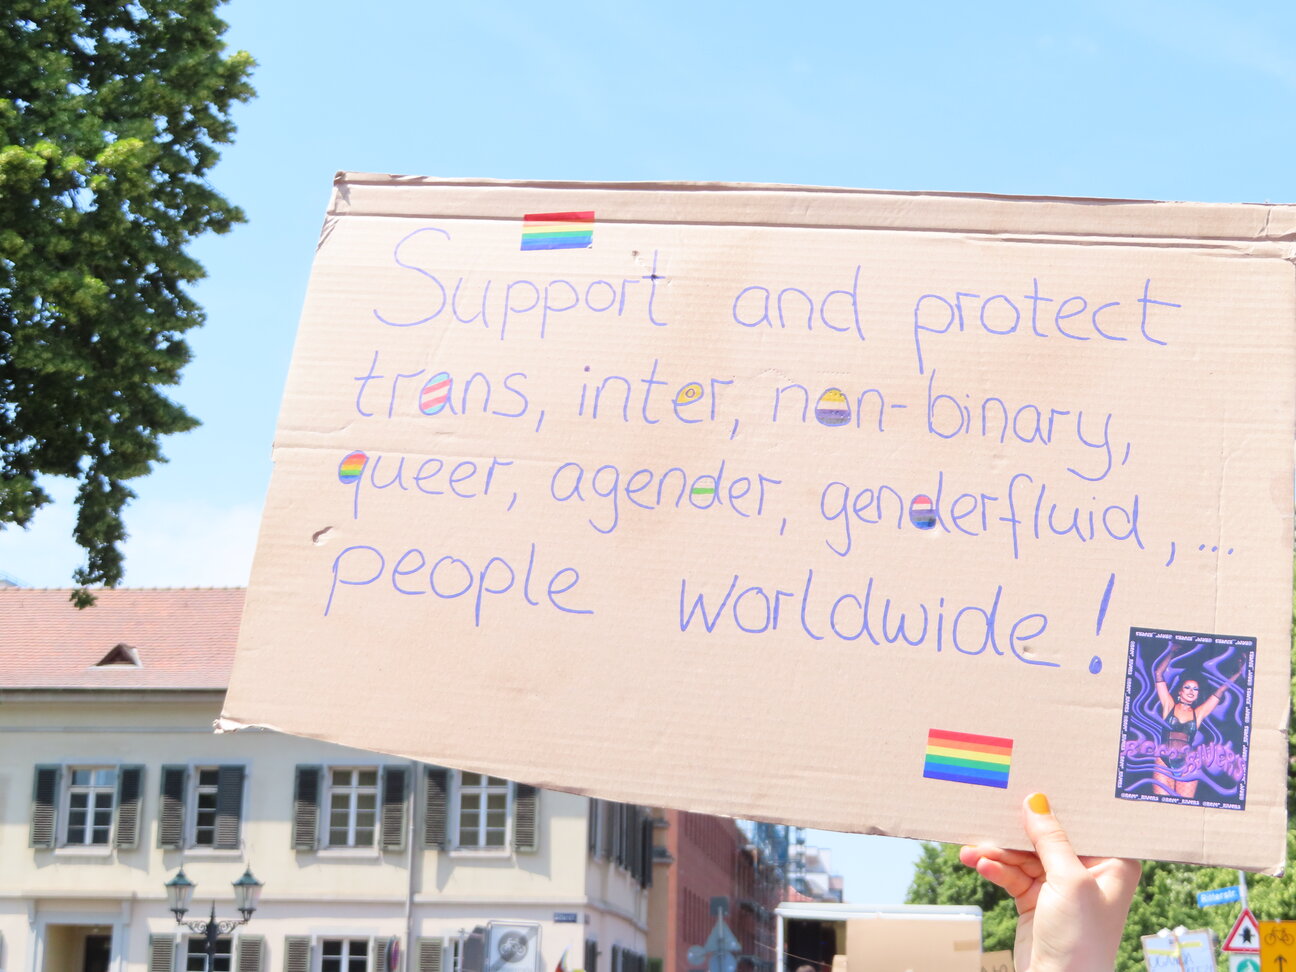 Support and protect
trans, inter, non-binary,
queer, agender, genderfluid,...
people worldwide!
Ritterstr.